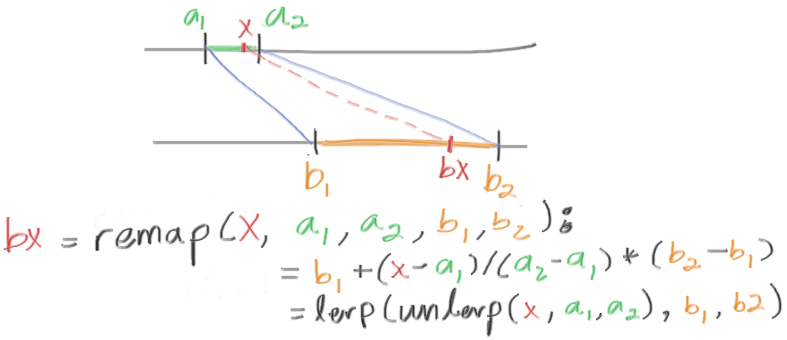 a₁ x a₂
b₁ bx b₂
bx = remap(x, a₁, a₂, b₁, b₂):
= b₁ + (x-a₁)/(a₂-a₁) * (b₂-b₁)
= lerp(unlerp(x, a₁, a₂), b₁, b2)